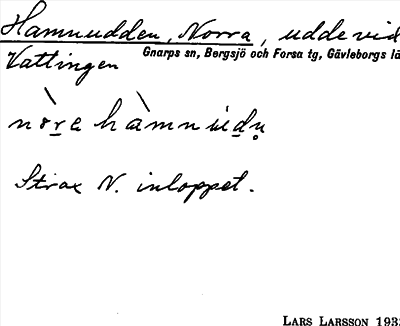 Hamnudden, Norra, udde vid
Gnarps sn, Bergsjö och Forsa tg, Gävleborgs lä
Vattingen
Strax N. inloppet.
LARS LARSSON 193